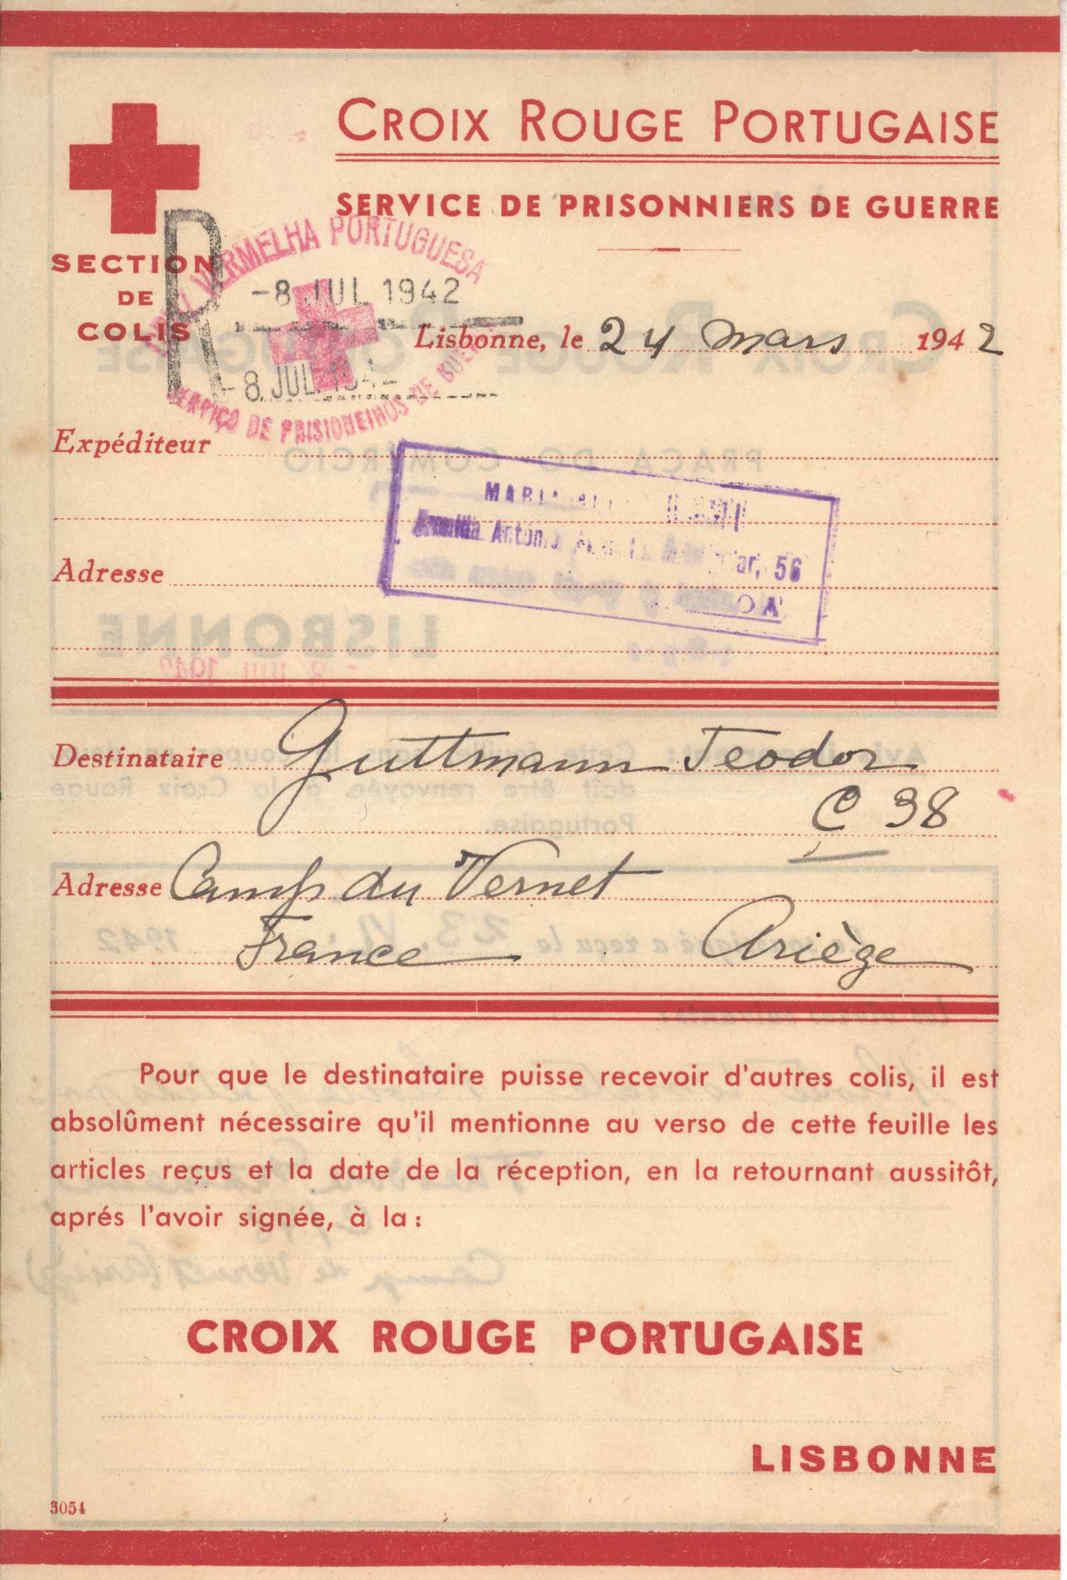 CROIX ROUGE PORTUGAISE
SERVICE DE PRISONNIERS DE GUERRE
SECTION
DE
COLIS
R
VERMELHA PORTUGUESA
-8 JUL 1942
-8 JUL 1942
SERVIÇO DE PRISIONEIROS DE GUERRA
Lisbonne, le 24 mars 1942
Expéditeur
MARIA
António
56
Adresse
Destinataire Guttmann Teodor
C 38
Adresse Camp du Vernet
France Ariège
Pour que le destinataire puisse recevoir d'autres colis, il est
absolûment nécessaire qu'il mentionne au verso de cette feuille les
articles reçus et la date de la réception, en la retournant aussitôt,
aprés l'avoir signée, à la :
CROIX ROUGE PORTUGAISE
LISBONNE
3054